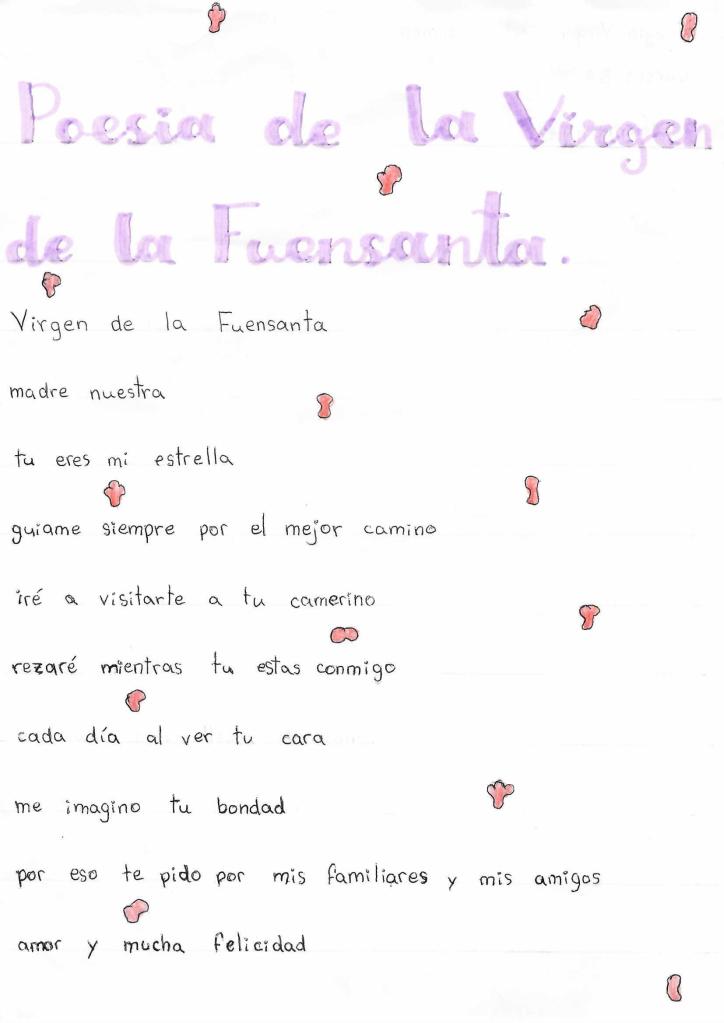 Poesia de la Virgen
de la Fuensanta.
Virgen de la Fuensanta
madre nuestra
tu eres mi estrella
guiame siempre por el mejor camino
iré a visitarte a tu camerino
rezaré mientras tu estas conmigo
cada día al ver tu cara
me imagino tu bondad
por eso te pido por mis familiares y mis amigos
amor y mucha felicidad